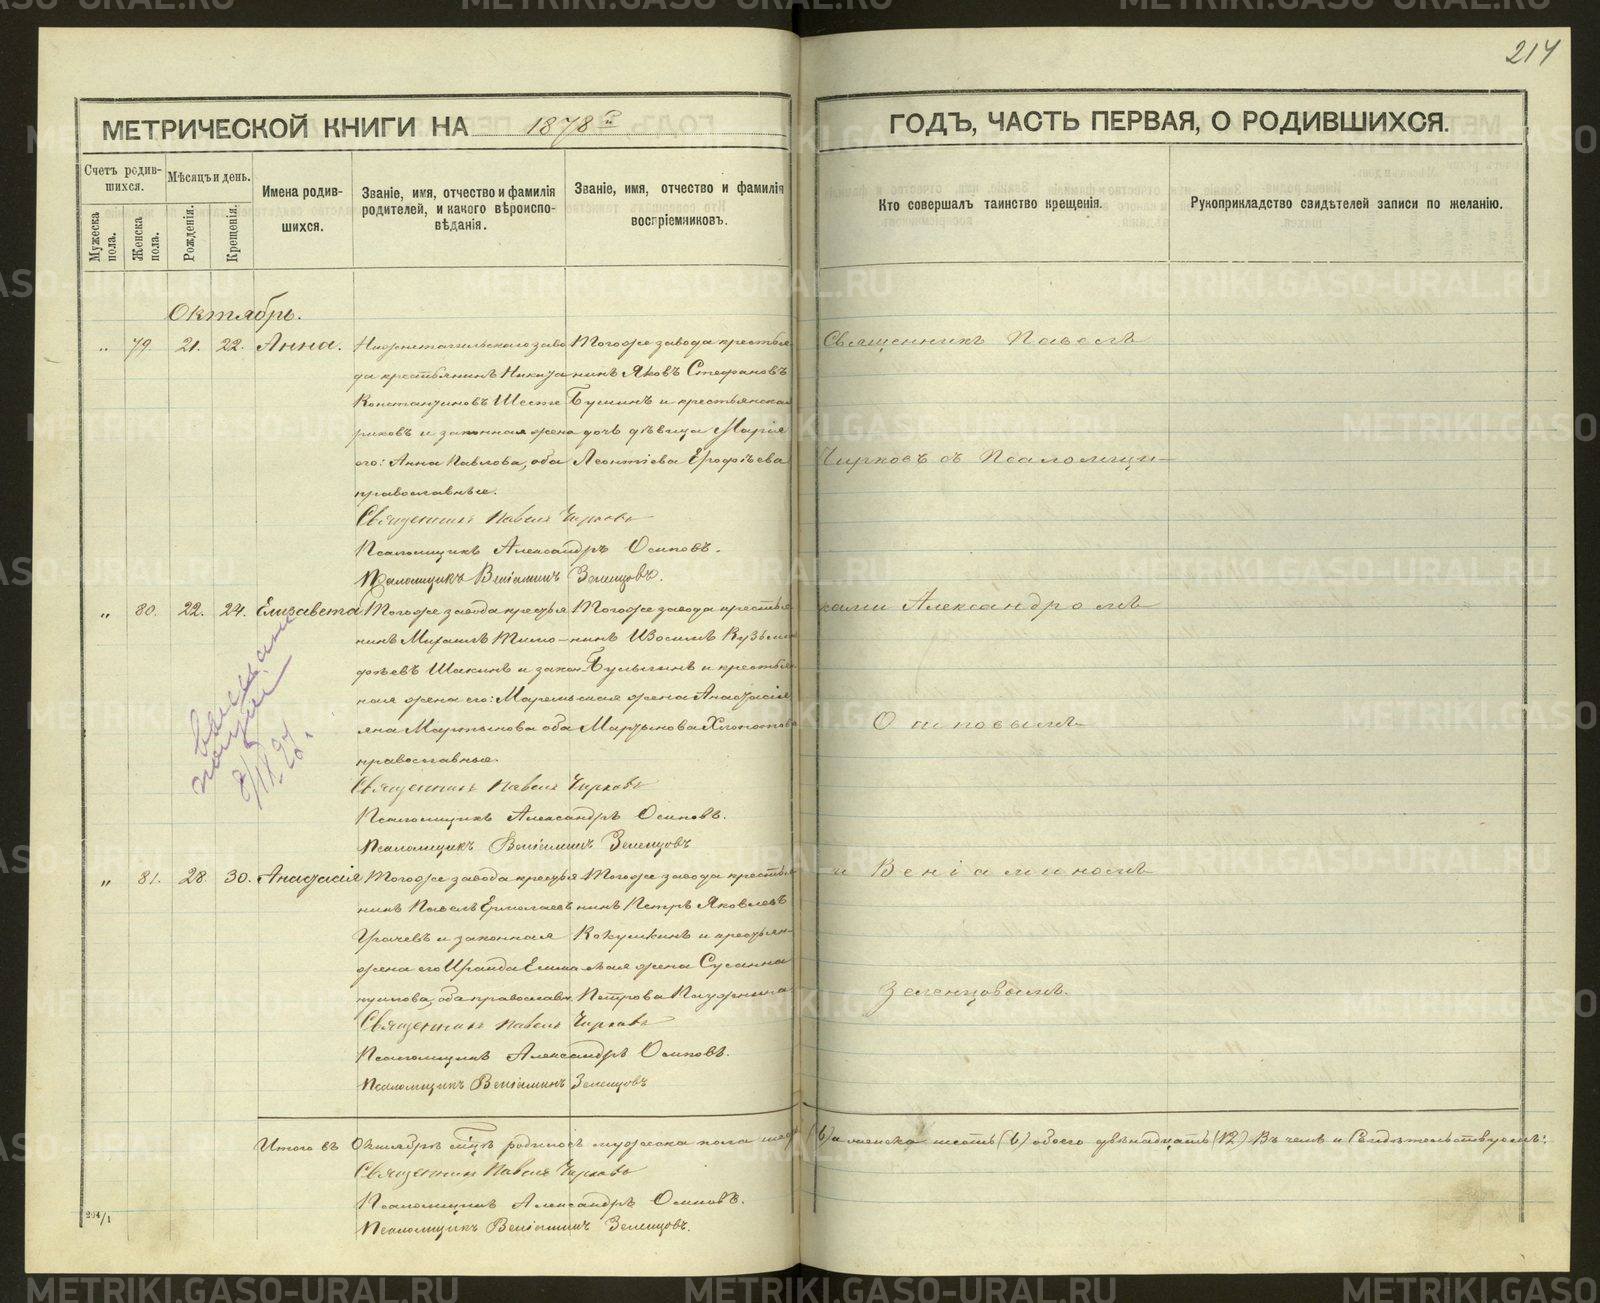 214
МЕТРИЧЕСКОЙ КНИГИ НА 1878й
ГОДЪ, ЧАСТЬ ПЕРВАЯ, О РОДИВШИХСЯ.
Счетъ родившихся.
Мужеска пола.
Женска пола.
Мѣсяцъ и день.
Рожденія.
Крещенія.
Имена родившихся.
Званіе, имя, отчество и фамилія родителей, и какого вѣроисповѣданія.
Званіе, имя, отчество и фамилія воспріемниковъ.
Кто совершалъ таинство крещенія.
Рукоприкладство свидѣтелей записи по желанію.
Октябрь.
„ 79. 21. 22. Анна.
Нижнетагильскаго заво
да крестьянинъ Никита
Константиновъ Шесте
риковъ и законная жена
его: Анна Павлова, оба
православные.
Тогоже завода крестья
нинъ Яковъ Стефановъ
и крестьянская
дочь дѣвица Марія
Леонтіева Ерофѣева
Священникъ Павелъ Чирковъ
Псаломщикъ Александръ Осиповъ.
Псаломщикъ Веніаминъ Зеленцовъ.
„ 80. 22. 24. Елизавета
Тогоже завода крестья
нинъ Михаилъ Тимо-
фѣевъ Шакинъ и закон-
ная жена его: Марем
яна Мартынова оба
православные.
Тогоже завода крестья
нинъ Изосимъ Кузьмин
Булыгинъ и крестьян
ская жена Анастасія
Мартынова Хлопотова
Священникъ Павелъ Чирковъ
Псаломщикъ Александръ Осиповъ.
Псаломщикъ Веніаминъ Зеленцовъ
„ 81. 28. 30. Анастасія
Тогоже завода крестья
нинъ Павелъ Ермолаевъ
Грачевъ и законная
жена его Ираида Емша
нуилова, оба православн.
Тогоже завода крестья
нинъ Петръ Яковлевъ
Кокушкинъ и крестьян-
ская жена Сусанна
Петрова
Священникъ Павелъ Чирковъ
Псаломщикъ Александръ Осиповъ.
Псаломщикъ Веніаминъ Зеленцовъ
Священникъ Павелъ
Чирковъ съ Псаломщи-
ками Александромъ
Осиповымъ
и Веніаминомъ
Зеленцовымъ.
Итого въ Октябрѣ мцѣ родилось мужеска пола шесть (6) а женска шесть (6) обоего двѣнадцать (12). Въ чемъ и Свидѣтельствуемъ:
Священникъ Павелъ Чирковъ
Псаломщикъ Александръ Осиповъ.
Псаломщикъ Веніаминъ Зеленцовъ.
264/1
METRIKI.GASO-URAL.RU